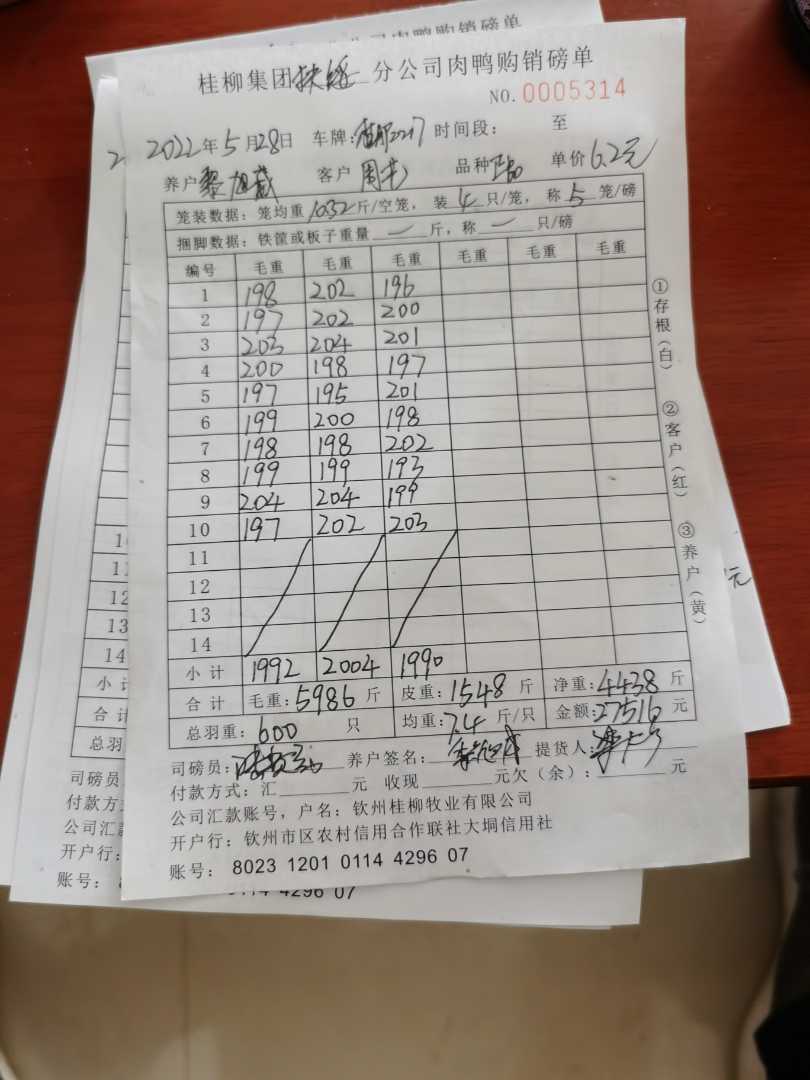 桂柳集团扶绥分公司肉鸭购销磅单
NO. 0005314
2022年5月28日 车牌: 2217 时间段: 至
养户 黎旭 客户 周 品种 单价 6.2元
笼装数据: 笼均重 10.32 斤/空笼, 装 4 只/笼, 称 5 笼/磅
捆脚数据: 铁筐或板子重量 — 斤, 称 — 只/磅
编号 毛重 毛重 毛重 毛重 毛重 毛重
1 198 202 196
2 197 202 200
3 203 204 201
4 200 198 197
5 197 195 201
6 199 200 198
7 198 198 202
8 199 199 193
9 204 204 199
10 197 202 203
11
12
13
14
小计 1992 2004 1990
合计 毛重: 5986 斤 皮重: 1548 斤 净重: 4438 斤
总羽重: 600 只 均重: 7.4 斤/只 金额: 27516 元
司磅员: 养户签名: 提货人:
付款方式: 汇 元 收现 元欠（余）: 元
公司汇款账号, 户名: 钦州桂柳牧业有限公司
开户行: 钦州市区农村信用合作联社大垌信用社
账号: 8023 1201 0114 4296 07
①存根（白）
②客户（红）
③养户（黄）
10
11
12
13
14
小计
合计
总羽
司磅员
付款方
公司汇
开户行:
账号:
元